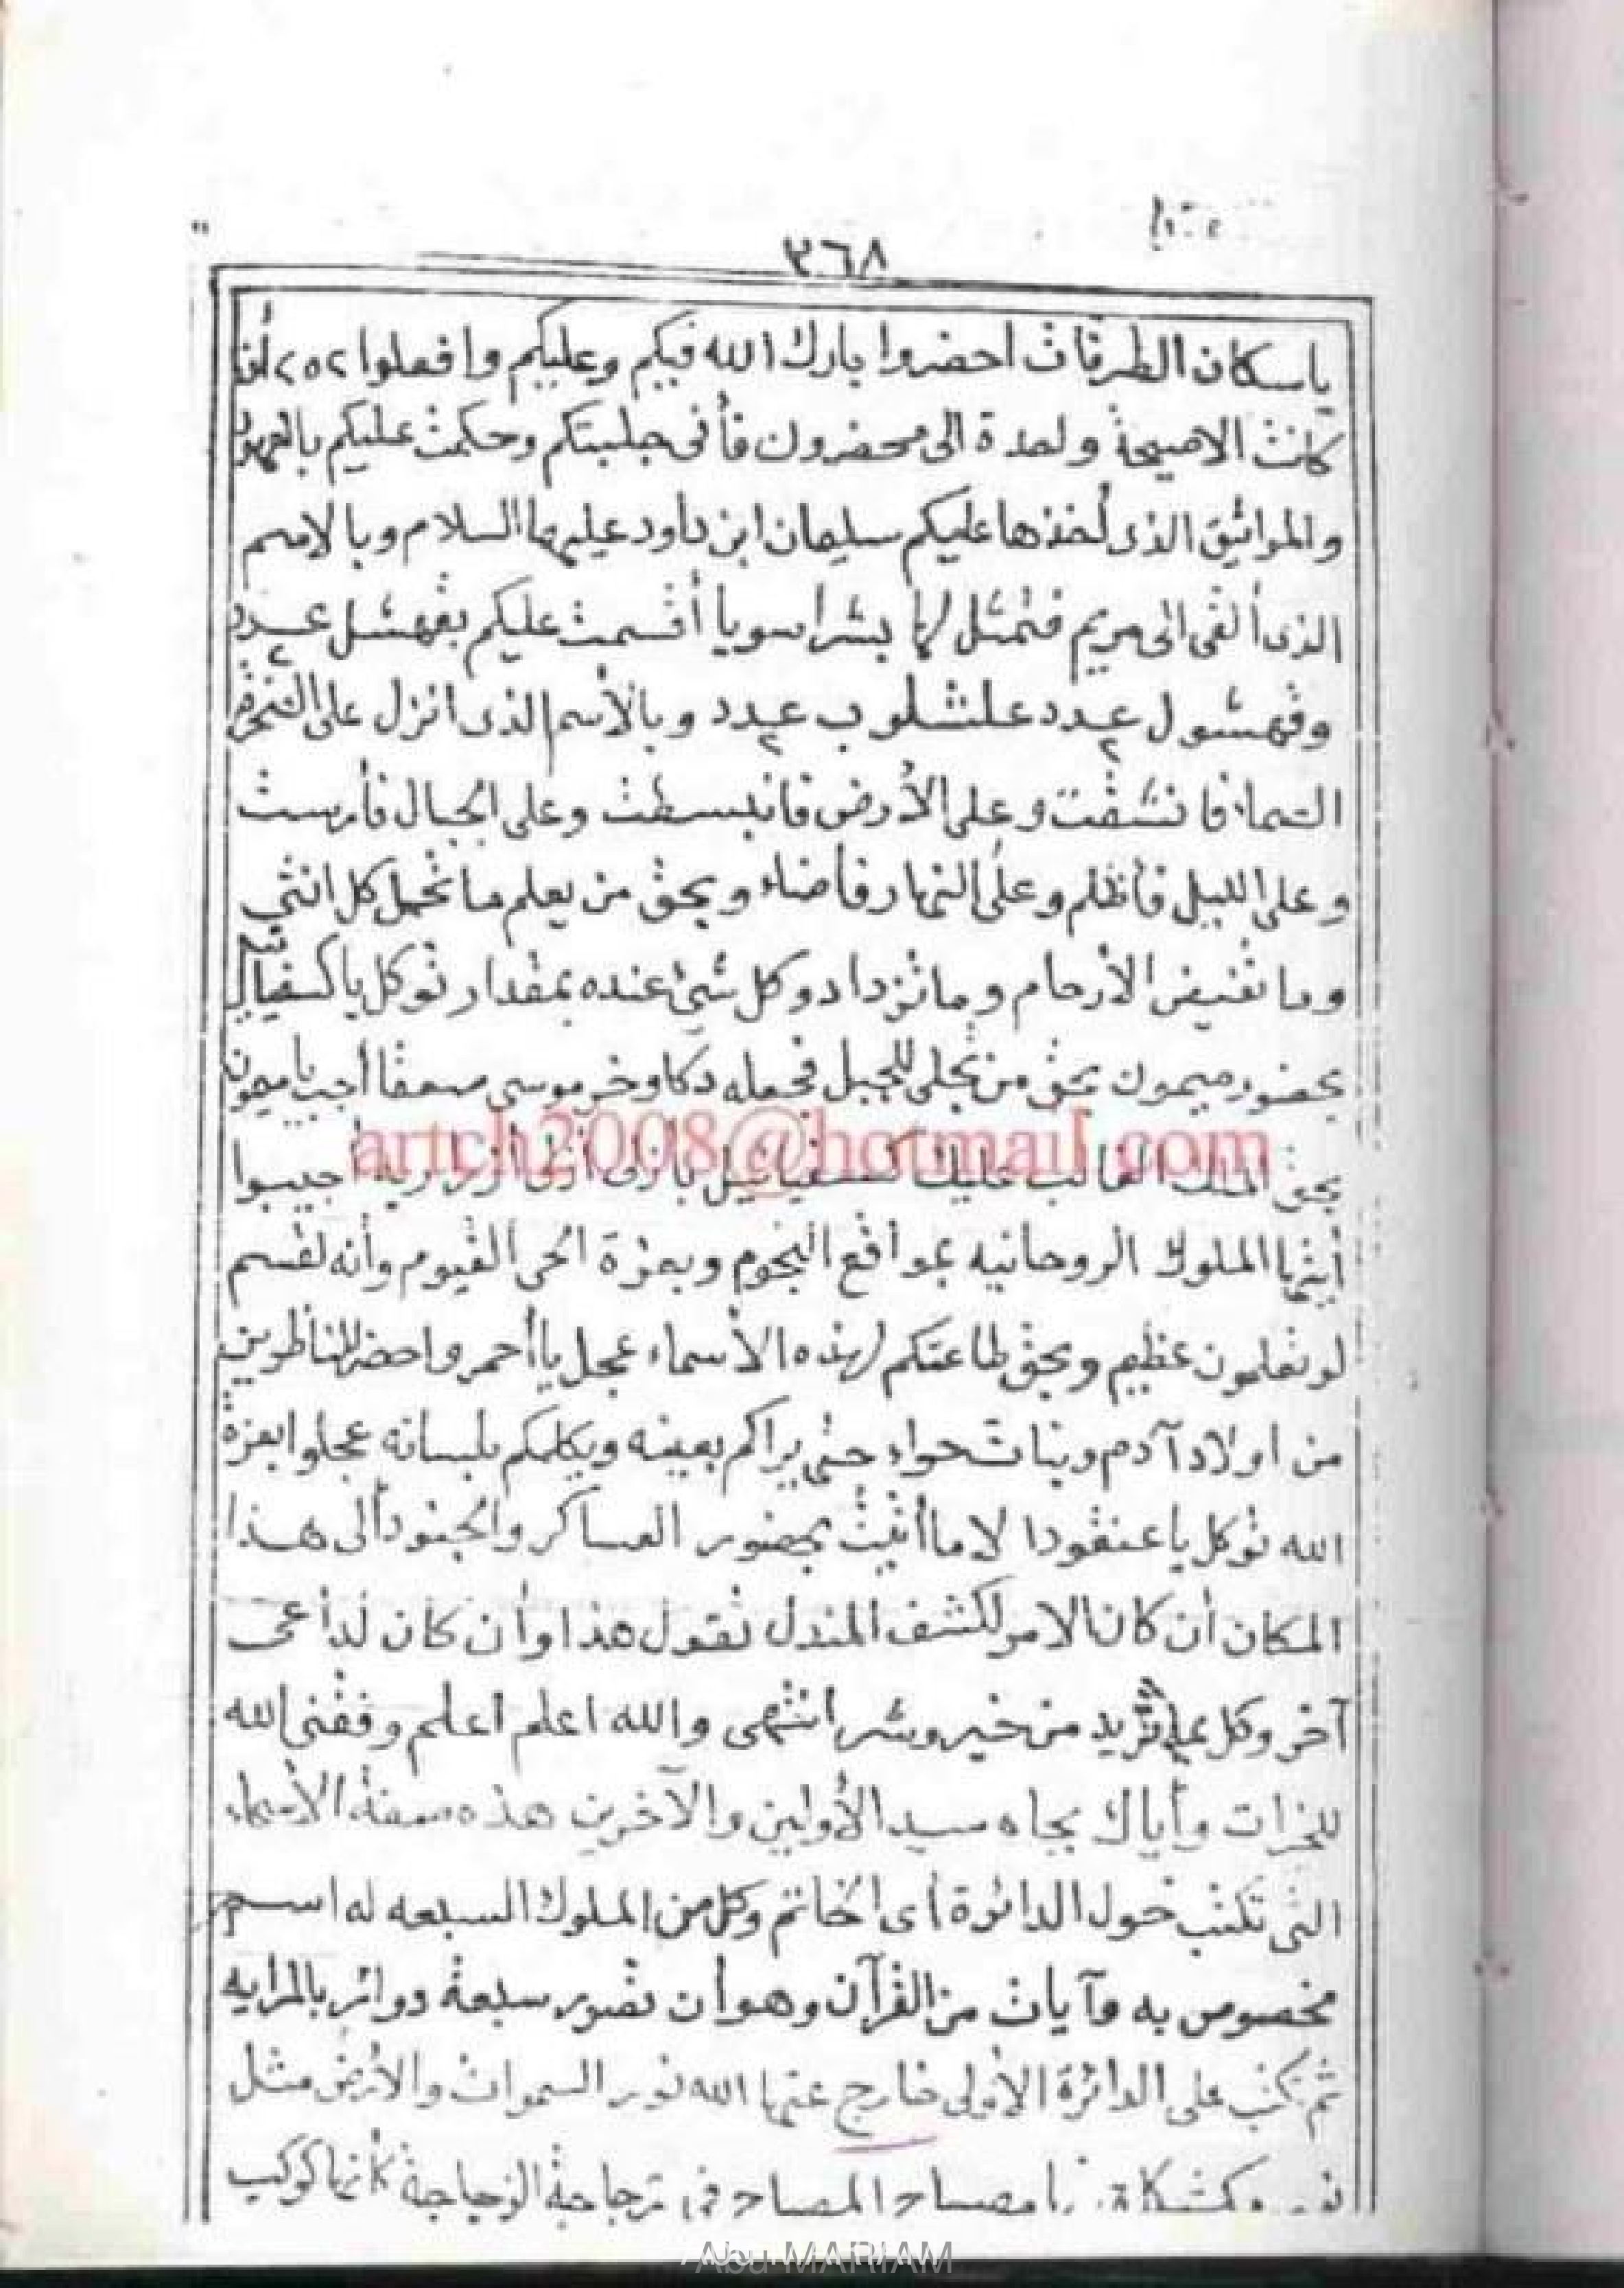 ٣٦٨
يا سكان الطرقات احضروا بارك الله فيكم وعليكم وافعلوا ٢٥٢ أن
كانت الا صيحة واحدة الى محضرون فأنى جلبتكم وحكمت عليكم بالعهود
والمواثيق الذى أخذها عليكم سليمان ابن داود عليهما السلام وبالاسم
الذى ألقى الى مريم فتمثل لها بشرا سويا أقسمت عليكم بفهشل عدد ٢
وفهشول عدد ٢ علشلوب عدد ٢ وبالأسم الذى انزل على
السماء فانشقت وعلى الأرض فانبسطت وعلى الجبال فأرست
وعلى الليل فأظلم وعلى النهار فأضاء وبحق من يعلم ما تحمل كل انثى
وما تغيض الأرحام وما تزداد وكل شئ عنده بمقدار توكل يا كسفيائيل
بحضور ميمون بحق من تجلى للجبل فجعله دكا وخر موسى صعقا أجب يا ميمون
artch2008@hotmail.com
بحق الملك الغالب عليك كسفيائيل اجيبوا
أيتها الملوك الروحانيه بمواقع النجوم وبعزة الحى القيوم وأنه لقسم
لو تعلمون عظيم وبحق طاعتكم لهذه الأسماء عجل يا أحمر واحضر للناظرين
من اولاد آدم وبنات حواء حتى يراكم بعينه ويكلمكم بلسانه عجلوا بعزة
الله توكل يا عنقود الا ما أتيت بحضور العساكر والجنود ألى هذا
المكان أن كان الامر لكشف المندل تقول هذا وأن كان لدأعى
آخر وكل بما تريد من خير وشر انتهى والله اعلم اعلم وفقنى الله
للخرات وأياك بجاه سيد الأولين والآخرين هذه صفة الأسماء
التى تكتب حول الدائرة أى الخاتم وكل من الملوك السبعه له اسم
مخصوص به وآيات من القرآن وهو أن تصور سبعة دوائر بالمرايه
ثم تكتب على الدائرة الأولى خارج عنها الله نور السموات والأرض مثل
نوره كمشكاة مصباح المصباح فى زجاجة الزجاجة كأنها كوكب
Abu MARIAM